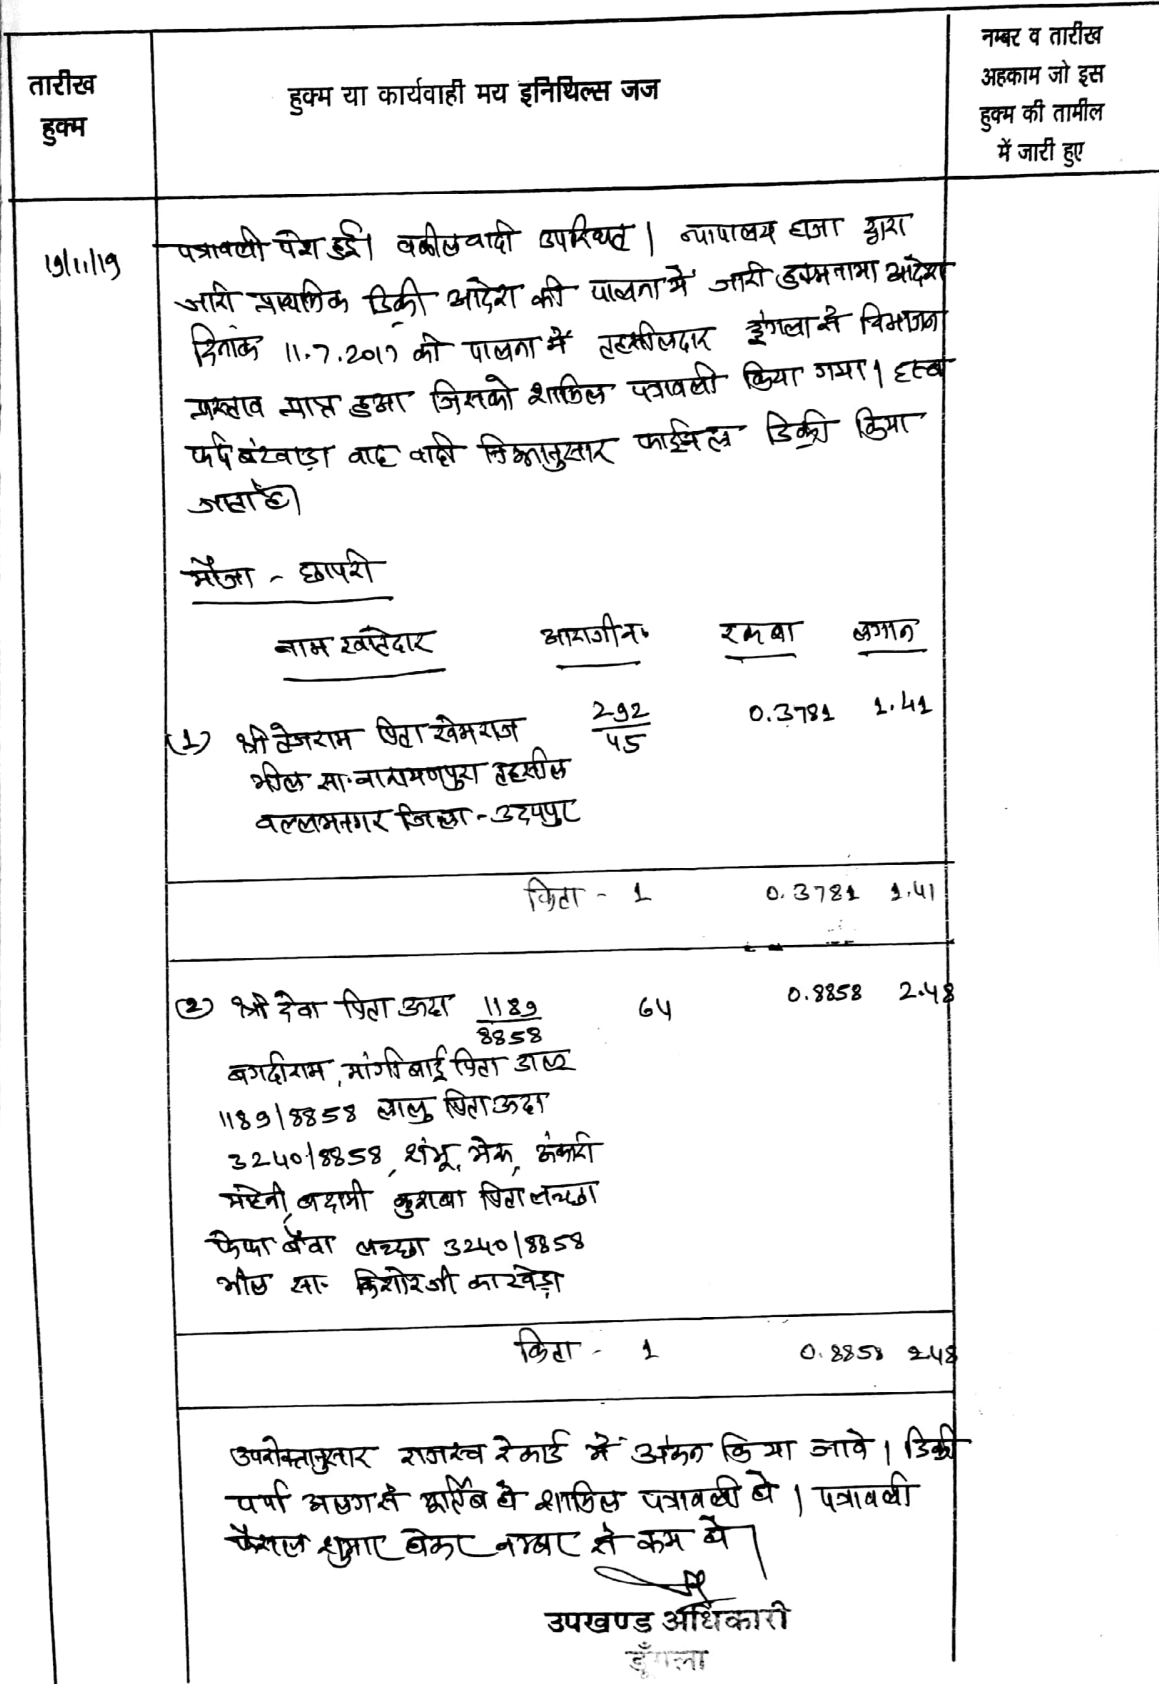 तारीख
हुक्म
हुक्म या कार्यवाही मय इनिथिल्स जज
नम्बर व तारीख
अहकाम जो इस
हुक्म की तामील
में जारी हुए
19/11/19
पत्रावली पेश हुई। वकील वादी उपस्थित। न्यायालय हाजा द्वारा
जारी प्राथमिक डिक्री आदेश की पालना में जारी हुक्मनामा आदेश
दिनांक 11.7.2017 की पालना में तहसीलदार डूंगला से विभाजन
प्रस्ताव प्राप्त हुआ जिसको शामिल पत्रावली किया गया। हस्ब
फर्द बंटवाड़ा वाद वादी निम्नानुसार फाईनल डिक्री किया
जाता है।
मौजा - छापरी
नाम खातेदार आराजी न. रकबा लगान
(1) श्री तेजराम पिता खेमराज 292/45 0.3781 1.41
भील सा. नारायणपुरा तहसील
वल्लभनगर जिला - उदयपुर
किता - 1 0.3781 1.41
(2) श्री देवा पिता ऊदा 1189/8858 64 0.8858 2.48
बगदीराम, मांगीबाई पिता डालू
1189/8858 लालु पिता ऊदा
3240/8858, शंभू, भेरू,
बदामी पिता लच्छा
बेवा लच्छा 3240/8858
भील सा. किशोरजी का खेड़ा
किता - 1 0.8858 2.48
उपरोक्तानुसार राजस्व रेकार्ड में अंकन किया जावे। डिक्री
पर्चा अलग से मुर्तिब हो शामिल पत्रावली हो। पत्रावली
फैसल शुमार होकर नम्बर से कम हो।
उपखण्ड अधिकारी
डूँगला